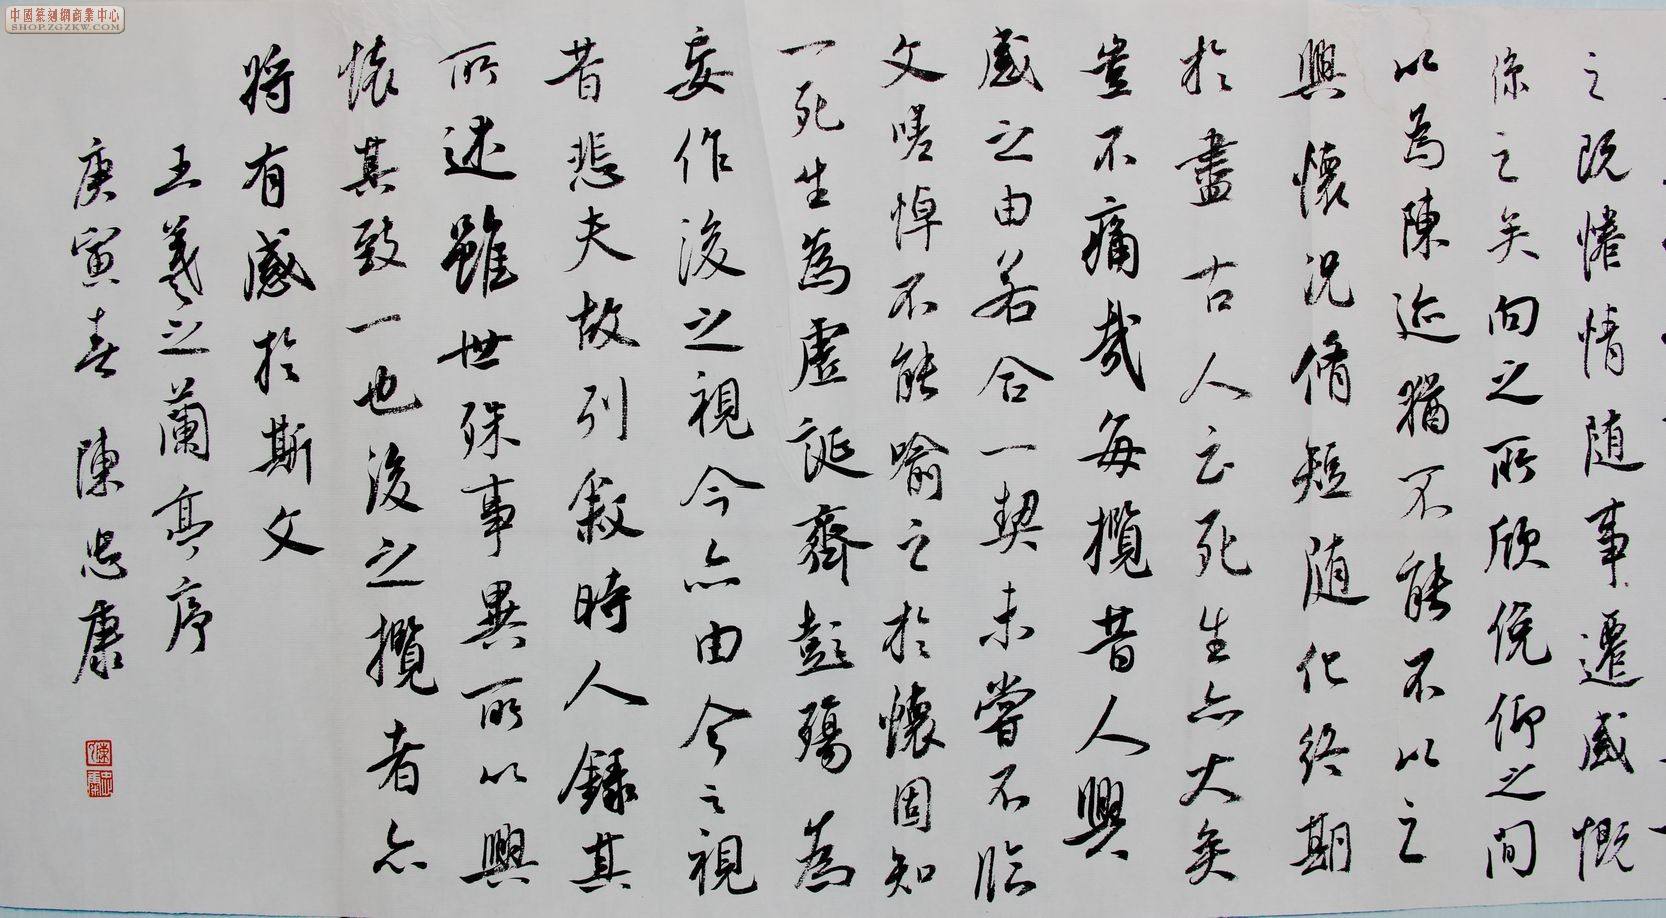 中國篆刻網商業中心
SHOP.ZGZKW.COM
之既惓情随事遷感慨
係之矣向之所欣俛仰之間
以為陳迹猶不能不以之
興懷況脩短随化終期
於盡古人云死生亦大矣
豈不痛哉每攬昔人興
感之由若合一契未嘗不臨
文嗟悼不能喻之於懷固知
一死生為虛誕齊彭殤為
妄作後之視今亦由今之視
昔悲夫故列敘時人錄其
所述雖世殊事異所以興
懷其致一也後之攬者亦
將有感於斯文
王羲之蘭亭序
庚寅春 陳忠康